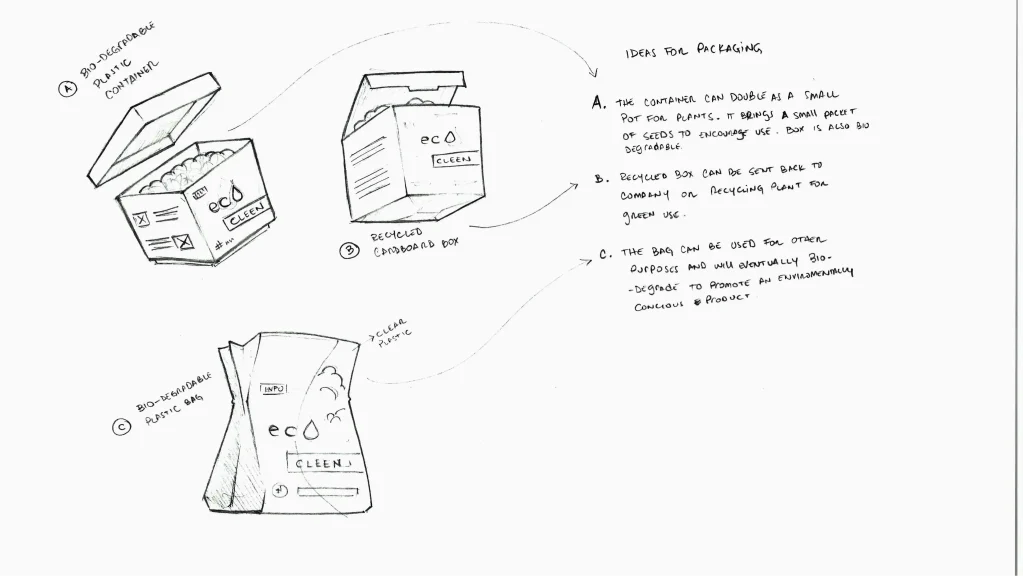 A
BIO-DEGRADABLE
PLASTIC
CONTAINER
INFO
eco
CLEEN
eco
CLEEN
B
RECYCLED
CARDBOARD BOX
C
BIO-DEGRADABLE
PLASTIC BAG
→ CLEAR
PLASTIC
INFO
eco
CLEEN
IDEAS FOR PACKAGING
A. THE CONTAINER CAN DOUBLE AS A SMALL
POT FOR PLANTS. IT BRINGS A SMALL PACKET
OF SEEDS TO ENCOURAGE USE. BOX IS ALSO BIO
DEGRADABLE.
B. RECYCLED BOX CAN BE SENT BACK TO
COMPANY OR RECYCLING PLANT FOR
GREEN USE.
C. THE BAG CAN BE USED FOR OTHER
PURPOSES AND WILL EVENTUALLY BIO-
-DEGRADE TO PROMOTE AN ENVIROMENTALLY
CONCIOUS PRODUCT